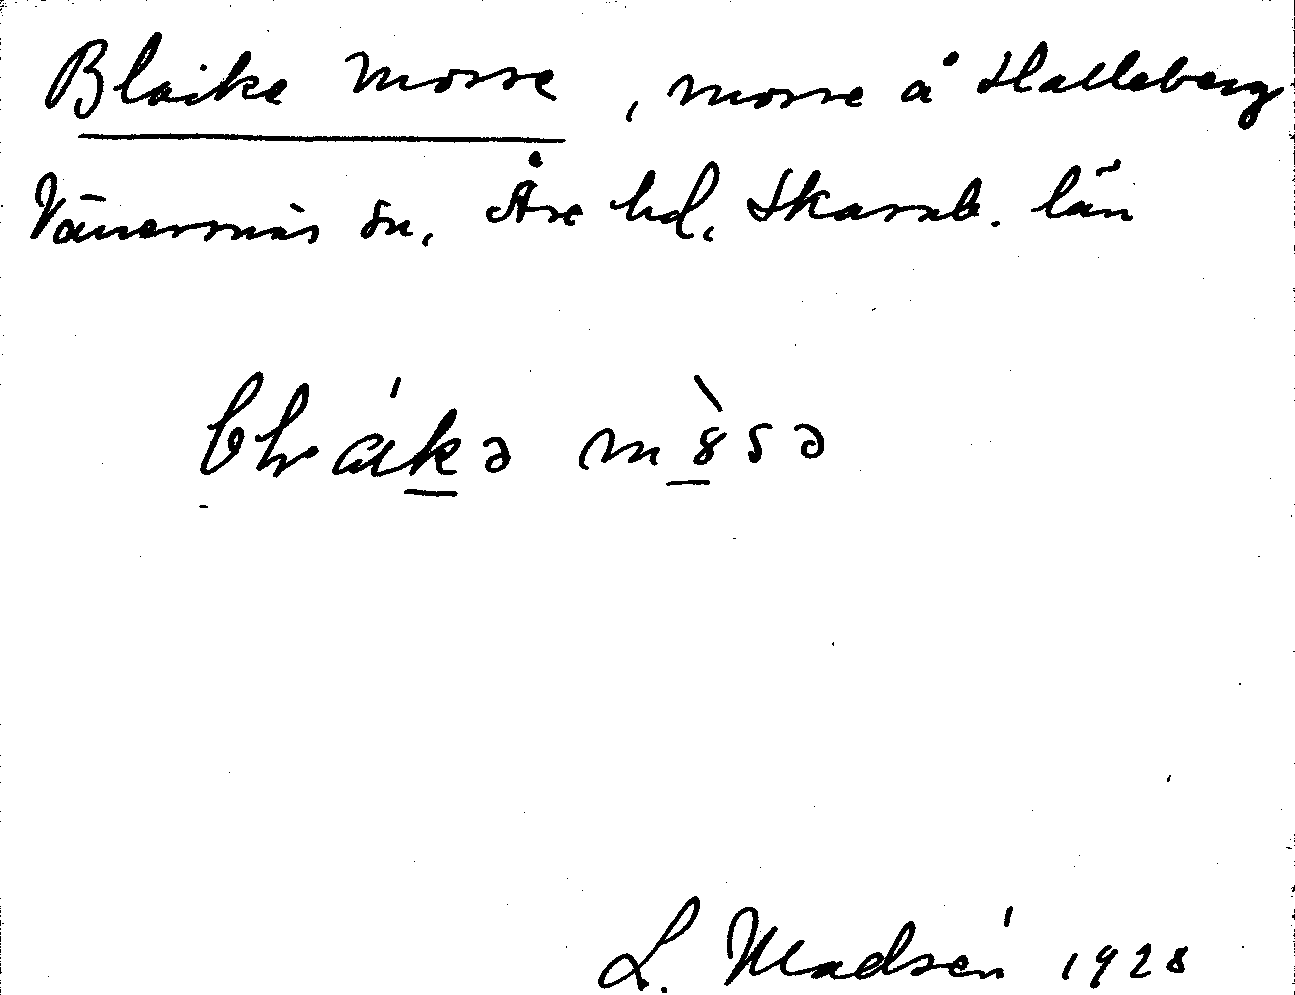 Blaike Mosse, mosse å Halleberg
Vänersnäs sn, Åse hd, Skarab. län
bláikə m̀8sə
L. Madsén 1928